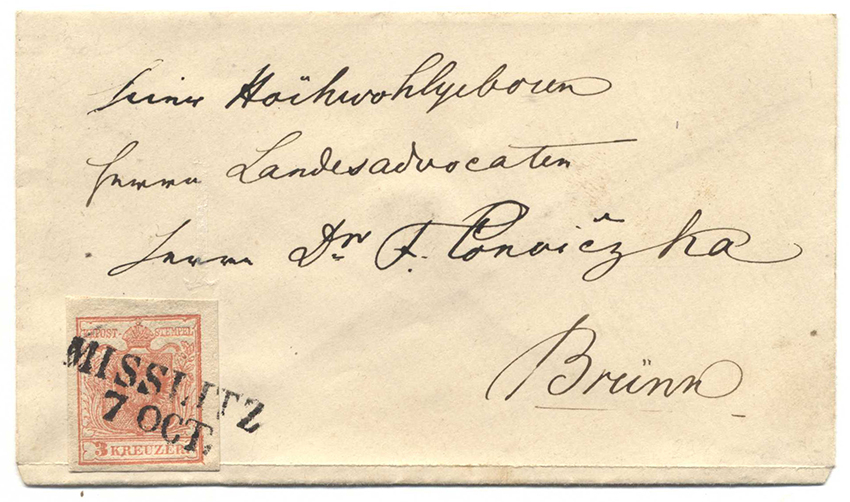 Seiner Hochwohlgeboren
Herrn Landesadvocaten
Herrn Dr F.
Brünn
KKPOST-STEMPEL
MISSLITZ
7 OCT.
3 KREUZER